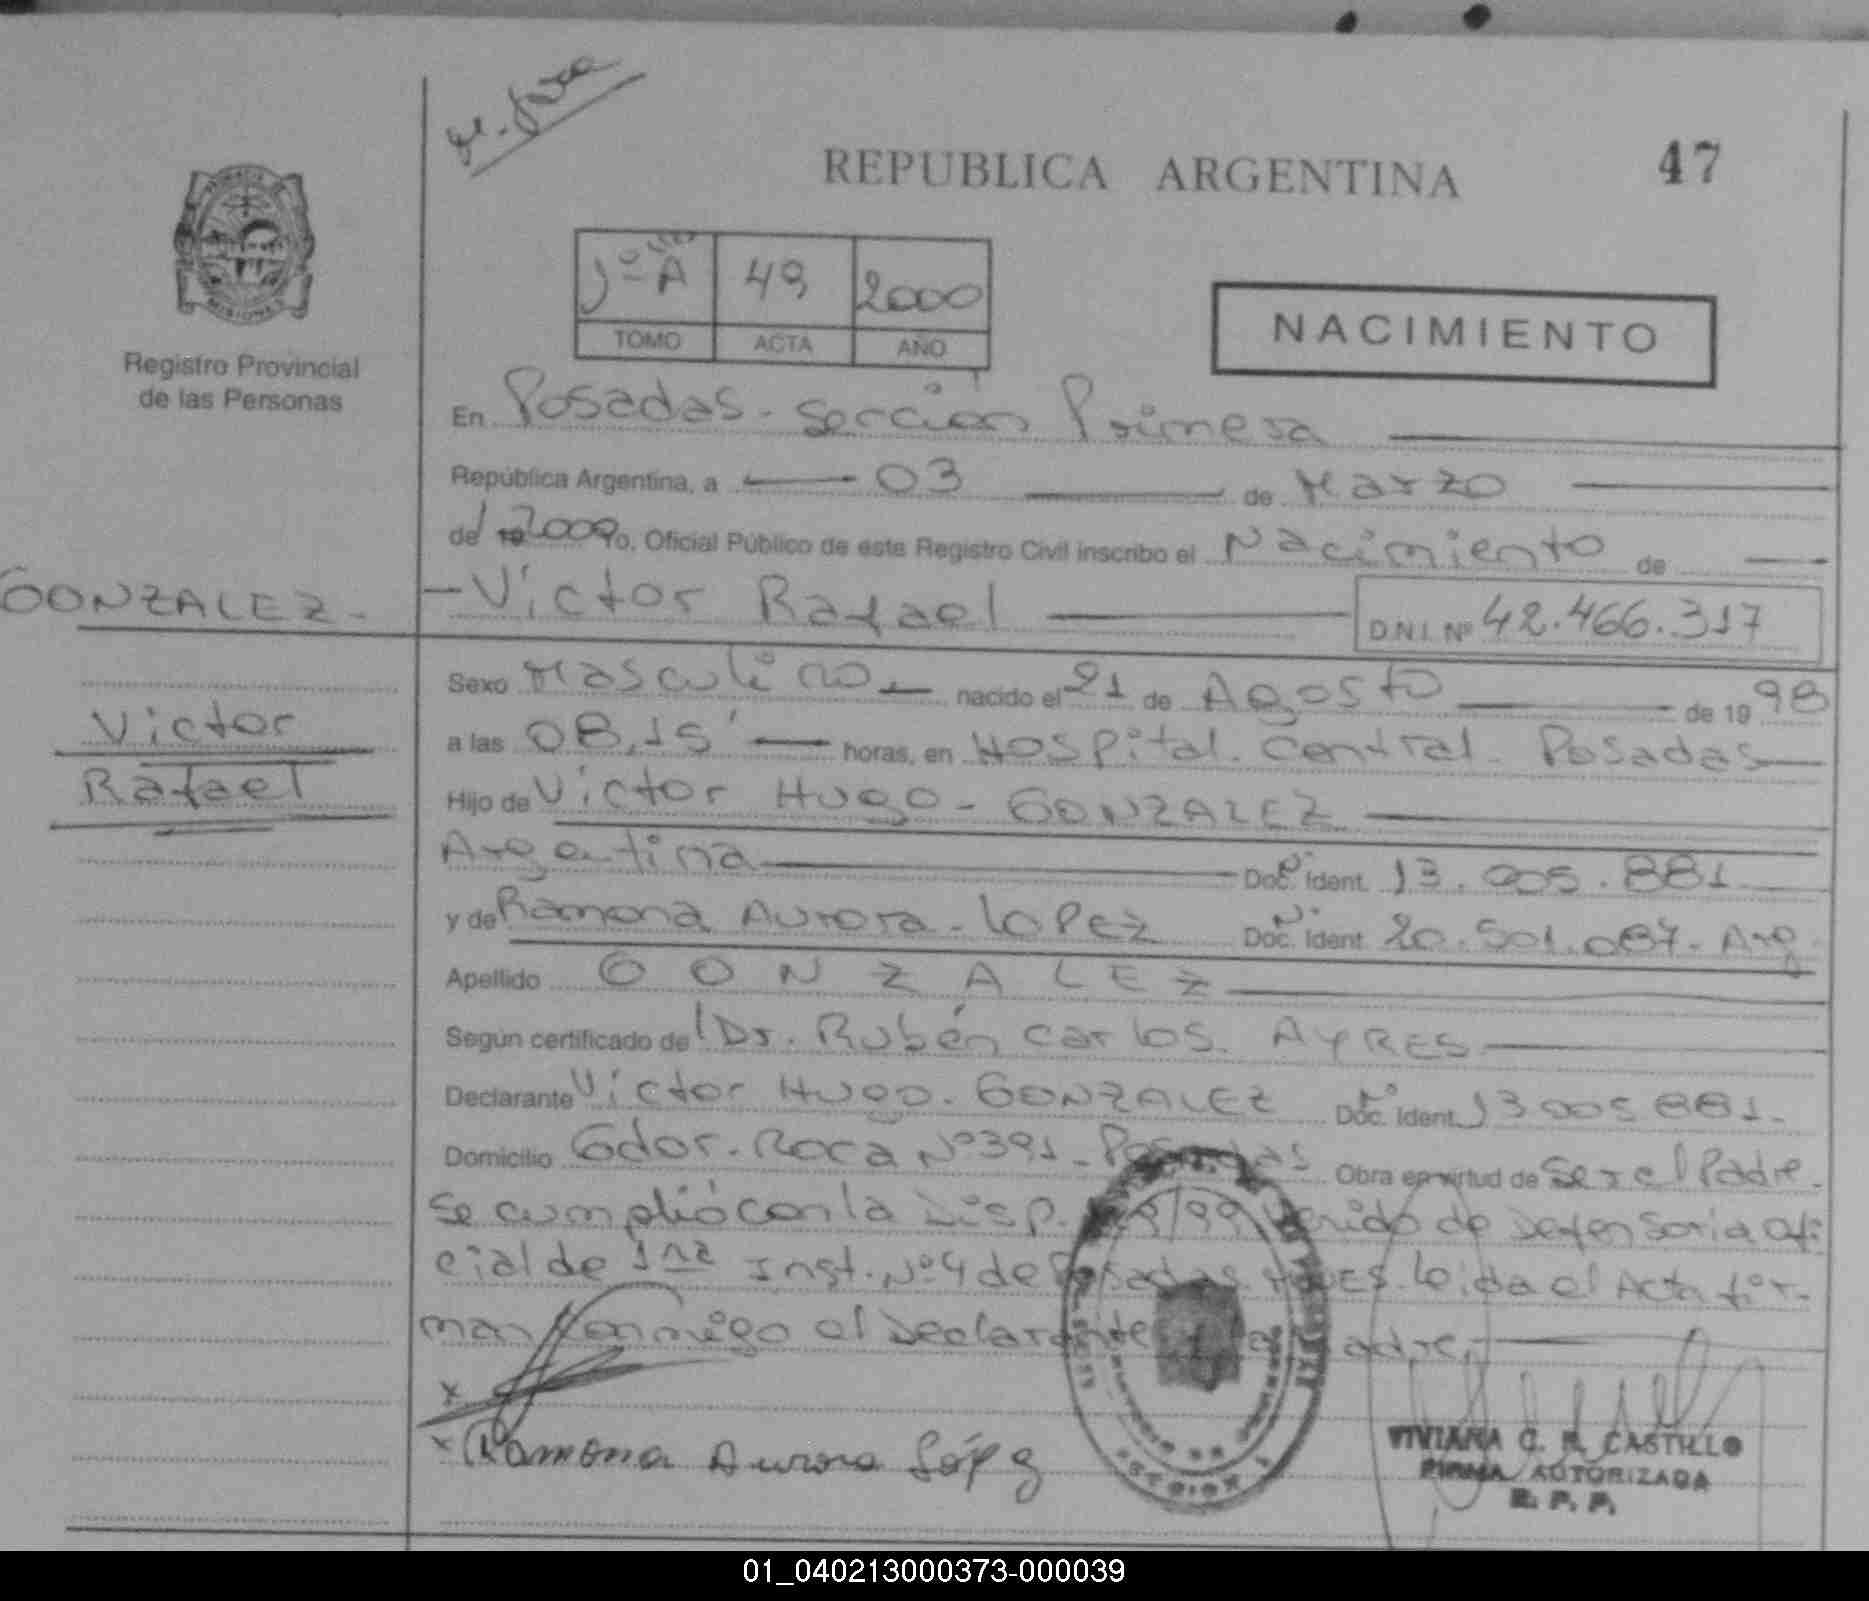 REPUBLICA ARGENTINA
47
MISIONES
Registro Provincial
de las Personas
1º A 49 2000
TOMO ACTA AÑO
NACIMIENTO
En Posadas - Sección Primera
República Argentina, a 03 de Marzo
de 2000 Yo, Oficial Público de este Registro Civil inscribo el Nacimiento de
GONZALEZ - Victor Rafael D.N.I. Nº 42.466.317
Sexo Masculino nacido el 21 de Agosto de 19 98
Victor
a las 08,15' horas, en Hospital Central Posadas
Rafael
Hijo de Victor Hugo - GONZALEZ
Argentina Doc. Ident. Nº 13.005.881
y de Ramona Aurora - Lopez Doc. Ident. Nº 20.501.087 - Arg
Apellido GONZALEZ
Según certificado de Dr. Rubén Carlos AYRES
Declarante Victor Hugo - GONZALEZ Doc. Ident. Nº 13 005 881 -
Domicilio Gdor. Roca Nº 391 - Posadas Obra en virtud de Ser el Padre.
Se cumplió con la Disp. /99 de Defensoria Ofi
cial de 1ra Inst. Nº 4 de Posadas Leida el Acta fir-
man conmigo el Declarante adre.
x
x Ramona Aurora López
VIVIANA C. R. CASTILLO
FIRMA AUTORIZADA
R. P. P.
01_040213000373-000039